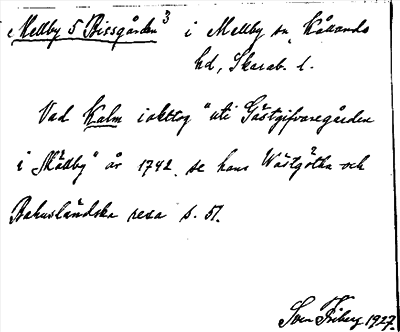 Mellby 5 Bissgården 3 i Mellby sn, Kållands
hd, Skarab. l.
Vad Kalm iakttog "uti Gästgifvaregården
i Mällby" år 1742 se hans Wästgötha och
Bahusländska resa s. 51.
Sven Friberg 1927.